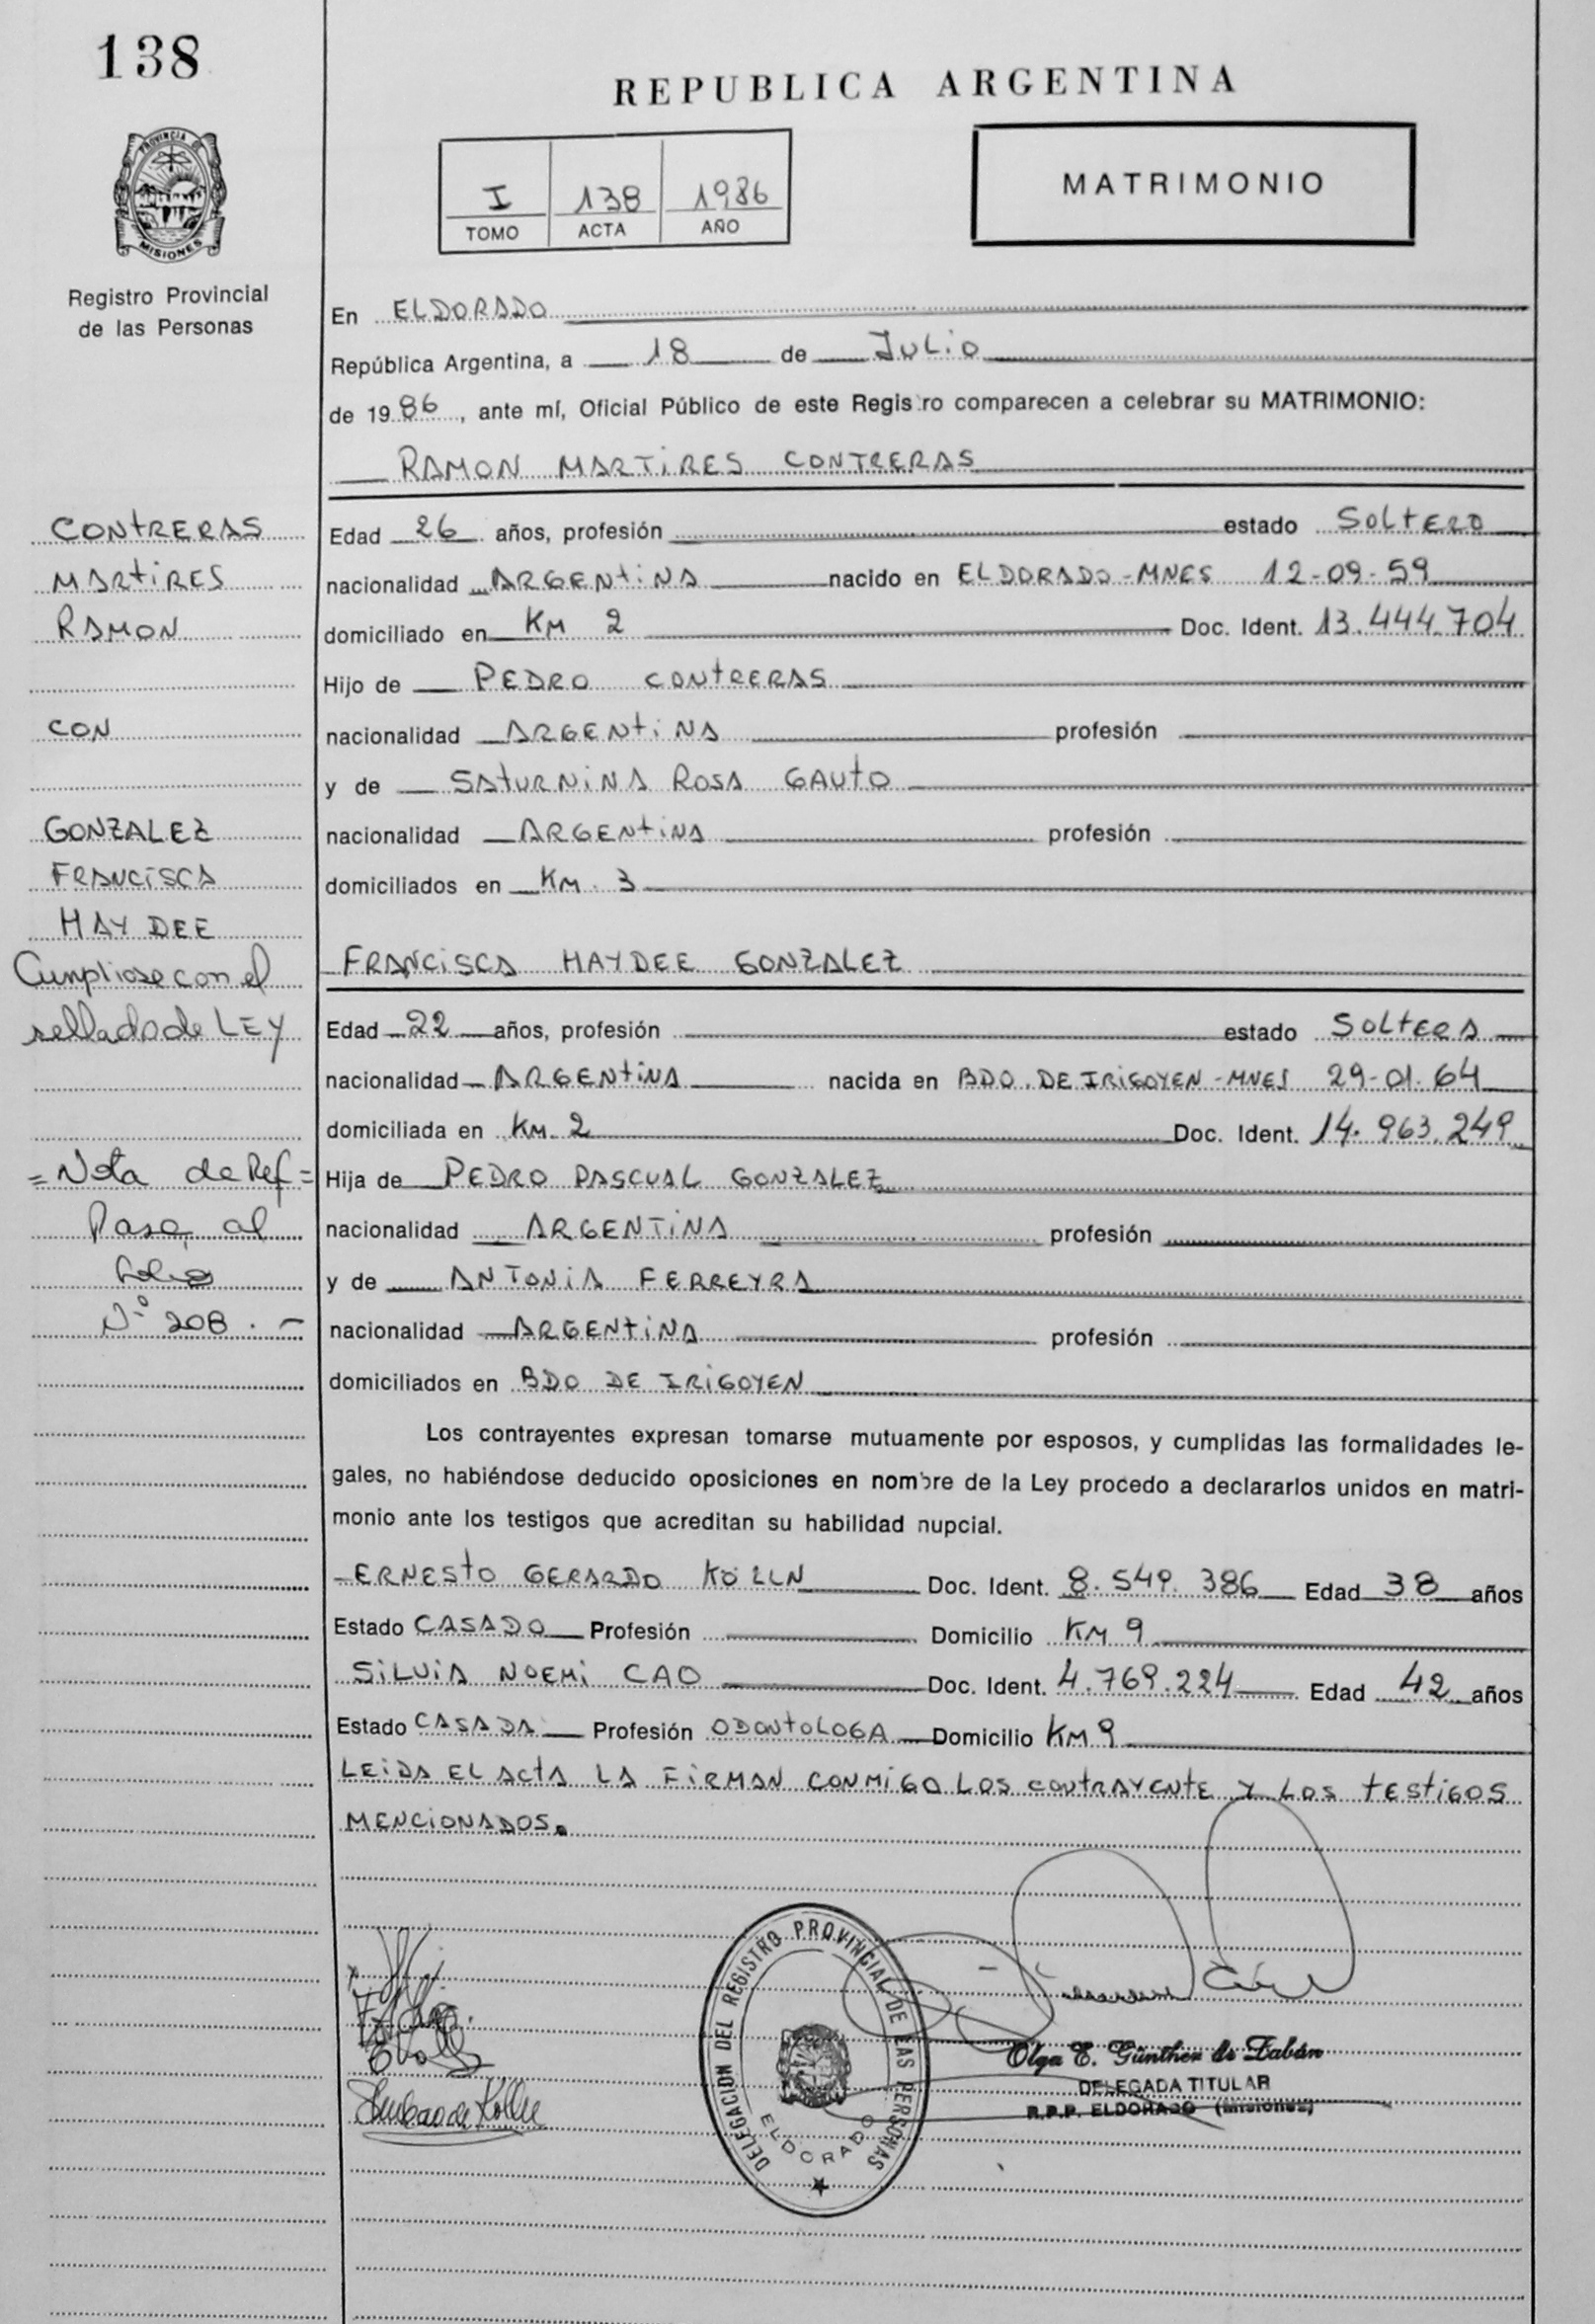 138
REPUBLICA ARGENTINA
PROVINCIA DE
MISIONES
I 138 1986
TOMO ACTA AÑO
MATRIMONIO
Registro Provincial
de las Personas
En ELDORADO
República Argentina, a 18 de Julio
de 1986, ante mí, Oficial Público de este Registro comparecen a celebrar su MATRIMONIO:
RAMON MARTIRES CONTRERAS
CONTRERAS
MARTIRES
RAMON
CON
GONZALEZ
FRANCISCA
HAYDEE
Cumpliose con el
sellado de LEY
= Nota de Ref =
Pasa al
folio
N° 208.-
Edad 26 años, profesión estado SOLTERO
nacionalidad ARGENTINA nacido en ELDORADO-MNES 12-09-59
domiciliado en KM 2 Doc. Ident. 13.444.704
Hijo de PEDRO CONTRERAS
nacionalidad ARGENTINA profesión
y de SATURNINA ROSA GAUTO
nacionalidad ARGENTINA profesión
domiciliados en KM. 3
FRANCISCA HAYDEE GONZALEZ
Edad 22 años, profesión estado SOLTERA
nacionalidad ARGENTINA nacida en BDO. DE IRIGOYEN-MNES 29-01-64
domiciliada en KM. 2 Doc. Ident. 14.963.249
Hija de PEDRO PASCUAL GONZALEZ
nacionalidad ARGENTINA profesión
y de ANTONIA FERREYRA
nacionalidad ARGENTINA profesión
domiciliados en BDO DE IRIGOYEN
Los contrayentes expresan tomarse mutuamente por esposos, y cumplidas las formalidades le-
gales, no habiéndose deducido oposiciones en nombre de la Ley procedo a declararlos unidos en matri-
monio ante los testigos que acreditan su habilidad nupcial.
ERNESTO GERARDO KÖLLN Doc. Ident. 8.549.386 Edad 38 años
Estado CASADO Profesión Domicilio KM 9
SILVIA NOEMI CAO Doc. Ident. 4.769.224 Edad 42 años
Estado CASADA Profesión ODONTOLOGA Domicilio KM 9
LEIDA EL ACTA LA FIRMAN CONMIGO LOS CONTRAYENTE Y LOS TESTIGOS
MENCIONADOS.
DELEGACION DEL REGISTRO PROVINCIAL DE LAS PERSONAS
ELDORADO
Olga E. Günther de Zabán
DELEGADA TITULAR
R.P.P. ELDORADO (Misiones)